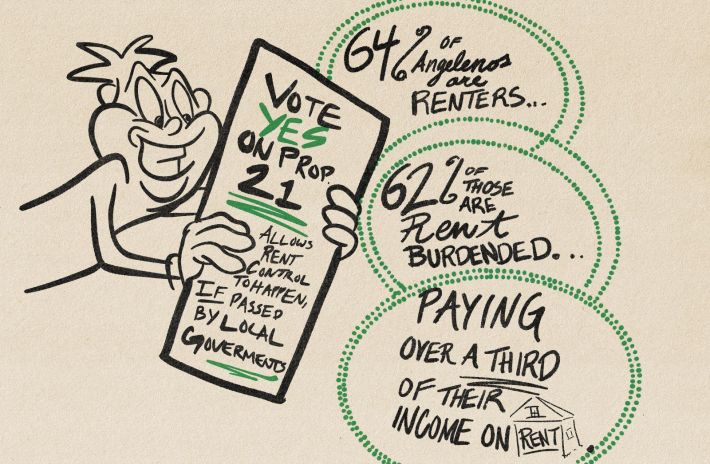 VOTE
YES
ON PROP.
21
ALLOWS
RENT
CONTROL
TO HAPPEN,
IF PASSED
BY LOCAL
GOVERMENTS
64% OF
Angelenos
are
RENTERS...
62% OF
THOSE
ARE
Rent
BURDENDED...
PAYING
OVER A THIRD
OF THEIR
INCOME ON RENT